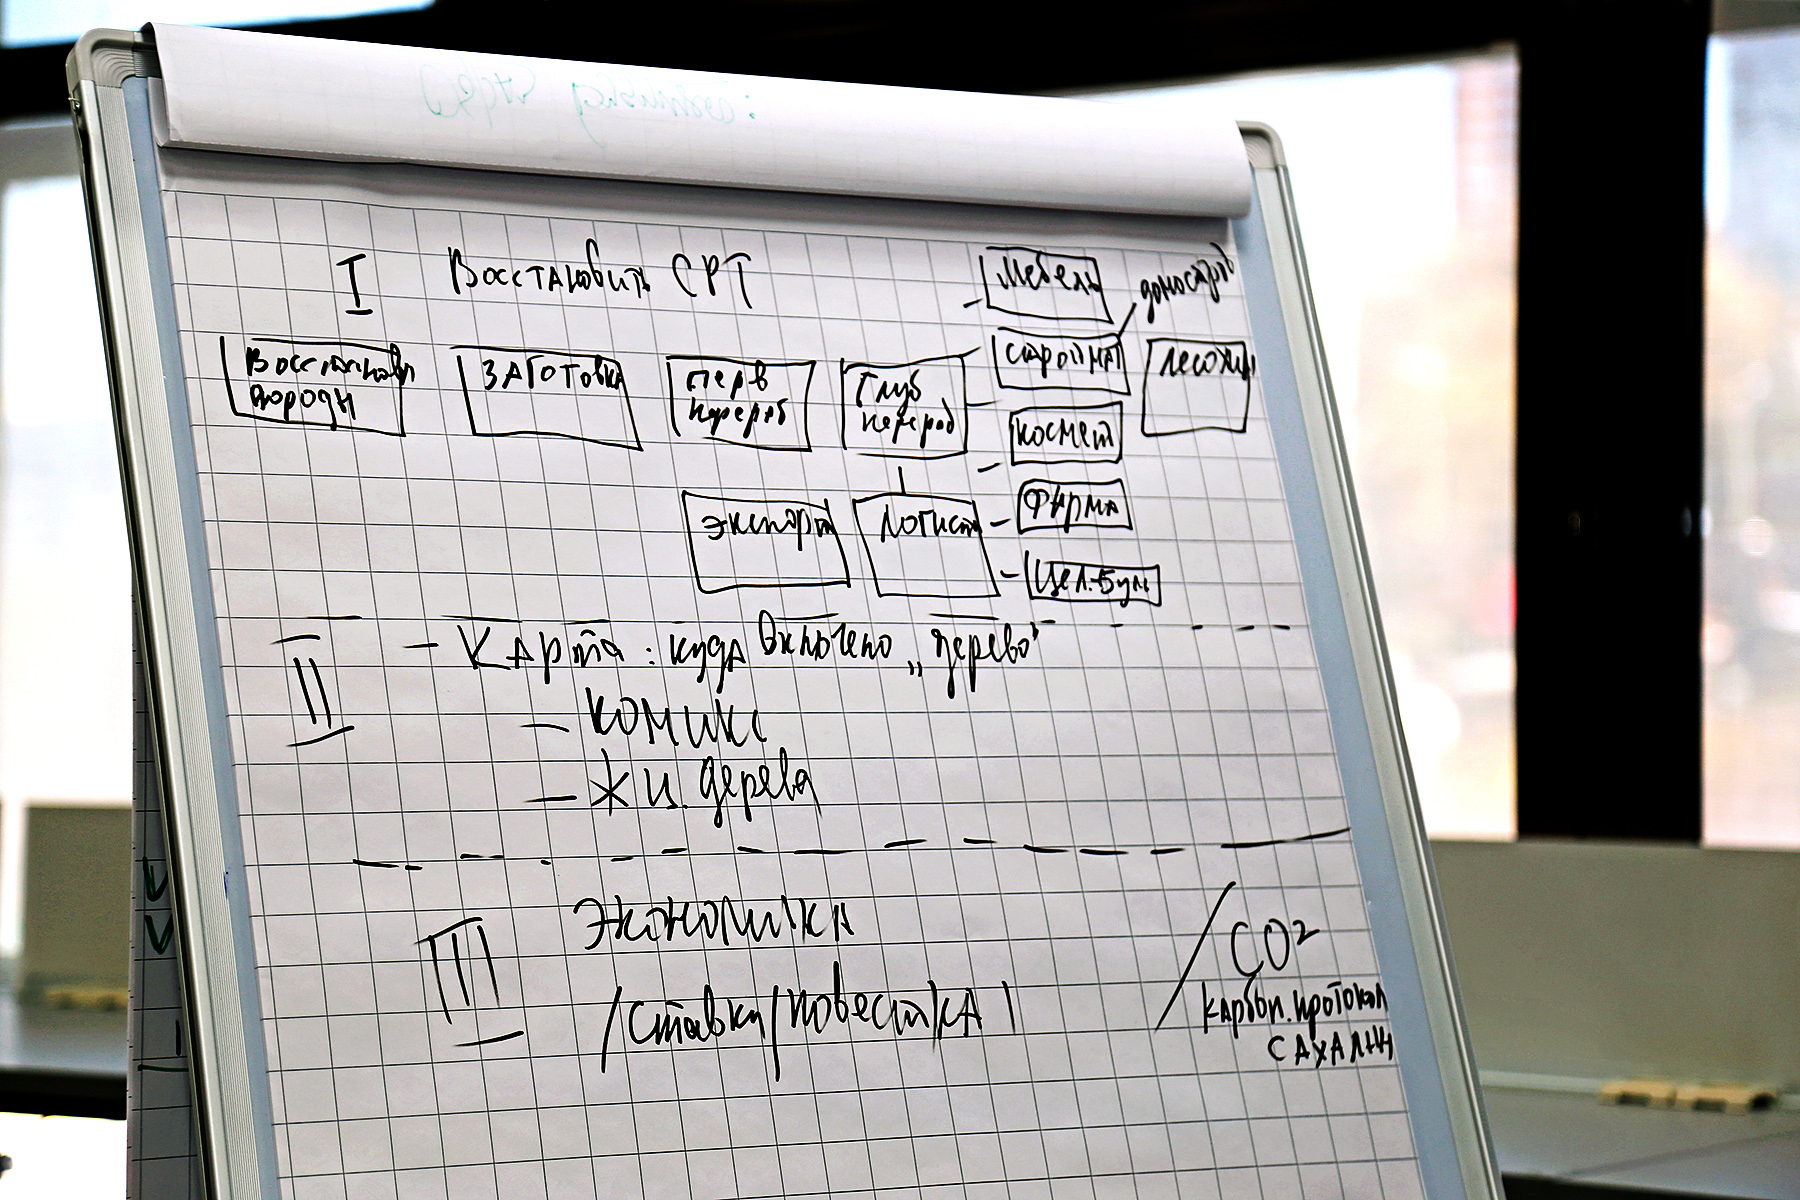 I Восстановить СРТ
Мебель
домострой
Восстановл
породы
ЗАГОТОВКА
перв
перераб
Глуб
перераб
строймат
лесохим
космет
экспорт
логист
ФАРМА
Цел.-Бум
II - Карта: куда включено „дерево"
- комикс
- Ж.ц. дерева
III Экономика
/ставки/повестка/
CO²
карбон. протокол
САХАЛИН